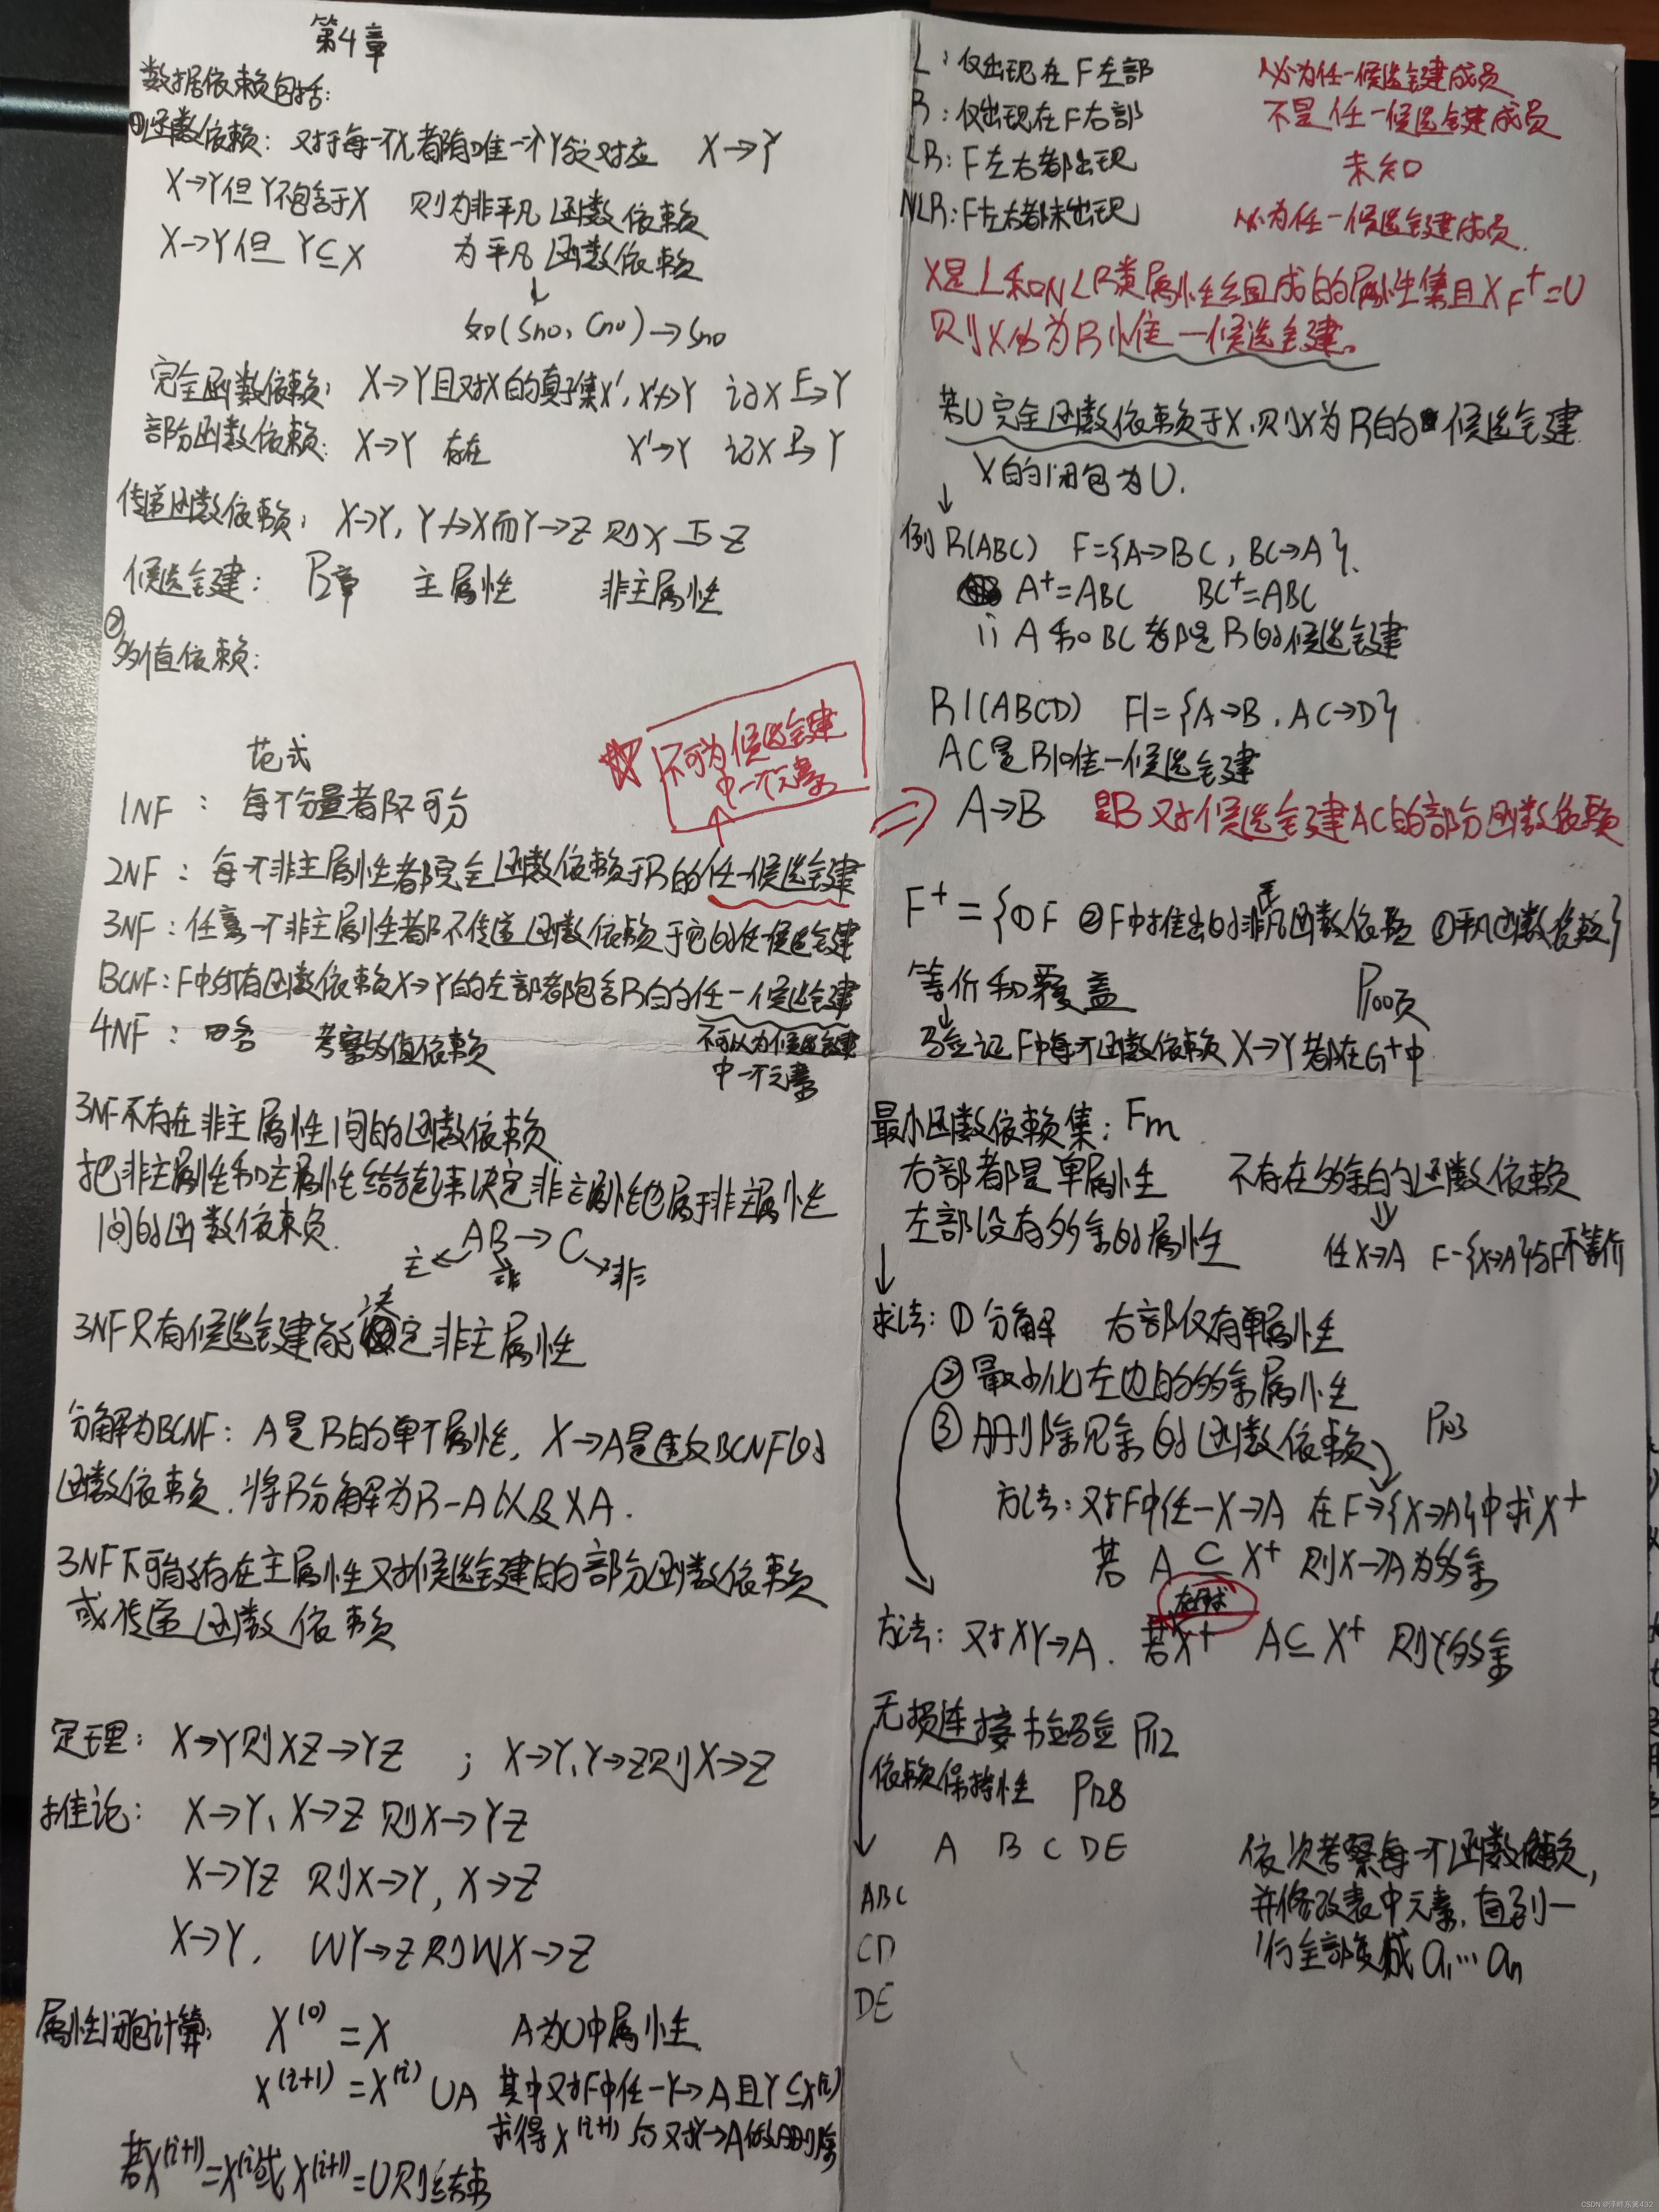 第4章
数据依赖包括:
①函数依赖: 对于每一个X都有唯一个Y与之对应 X→Y
X→Y但Y不包含于X 则为非平凡函数依赖
X→Y但 Y⊆X 为平凡函数依赖
↓
如(Sno, Cno)→Sno
完全函数依赖: X→Y且对X的真子集X', X'↛Y 记X F→Y
部分函数依赖: X→Y 存在 X'→Y 记X P→Y
传递函数依赖: X→Y, Y↛X而Y→Z 则X T→Z
候选键: B章 主属性 非主属性
②
多值依赖:
范式
☆ 不可为候选键
中一个元素
1NF: 每个分量都不可分
2NF: 每个非主属性都完全函数依赖于R的任一候选键
3NF: 任意一个非主属性都不传递函数依赖于它的任一候选键
BCNF: F中所有函数依赖X→Y的左部都包含R的任一候选键
4NF: 略 考察多值依赖 不可以为候选键
中一个元素
3NF不存在非主属性间的函数依赖
把非主属性和主属性结合起来决定非主属性也属于非主属性
间的函数依赖.
AB→C
主 非 非
3NF只有候选键能决定非主属性
分解为BCNF: A是R的单个属性, X→A是违反BCNF的
函数依赖, 将R分解为R-A以及XA.
3NF不可能存在主属性对候选键的部分函数依赖
或传递函数依赖
定理: X→Y则XZ→YZ ; X→Y、Y→Z则X→Z
推论: X→Y、X→Z 则X→YZ
X→YZ 则X→Y, X→Z
X→Y, WY→Z则WX→Z
属性闭包计算: X⁽⁰⁾=X A为U中属性
X⁽ⁱ⁺¹⁾=X⁽ⁱ⁾∪A 其中对F中任一Y→A且Y⊆X⁽ⁱ⁾
求得X⁽ⁱ⁺¹⁾后对Y→A做删除
若X⁽ⁱ⁺¹⁾=X⁽ⁱ⁾或X⁽ⁱ⁺¹⁾=U则结束
L: 仅出现在F左部 必为任一候选键成员
R: 仅出现在F右部 不是任一候选键成员
LR: F左右都出现 未知
NLR: F左右都未出现 必为任一候选键成员.
X是L和NLR类属性组成的属性集且X_F⁺=U
则X必为R唯一候选键。
若U完全函数依赖于X, 则X为R的候选键
X的闭包为U.
↓
例 R(ABC) F={A→BC, BC→A}.
A⁺=ABC BC⁺=ABC
∴ A和BC都是R的候选键
R1(ABCD) F1={A→B, AC→D}
AC是R1唯一候选键
⇒ A→B 是B对候选键AC的部分函数依赖
F⁺={①F ②F中推出的非平凡函数依赖 ①平凡函数依赖}
等价和覆盖 P100页
↓
验证F中每个函数依赖X→Y都在G⁺中
最小函数依赖集: Fm
右部都是单属性 不存在多余的函数依赖
左部没有多余的属性 ⇓
任X→A F-{X→A}与F不等价
↓
求法: ①分解 右部仅有单属性
②最小化左边的多余属性
③删除冗余的函数依赖 P103
方法: 对F中任一X→A 在F→{X→A}中求X⁺
若 A⊆X⁺ 则X→A为多余
方法: 对XY→A. 若X⁺ A⊆X⁺ 则Y多余
无损连接检验 P112
依赖保持性 P128
A B C D E
ABC
CD
DE
依次考察每一个函数依赖,
并修改表中元素, 直到一
行全部变成 a₁…aₙ
CSDN @泽畔东篱432